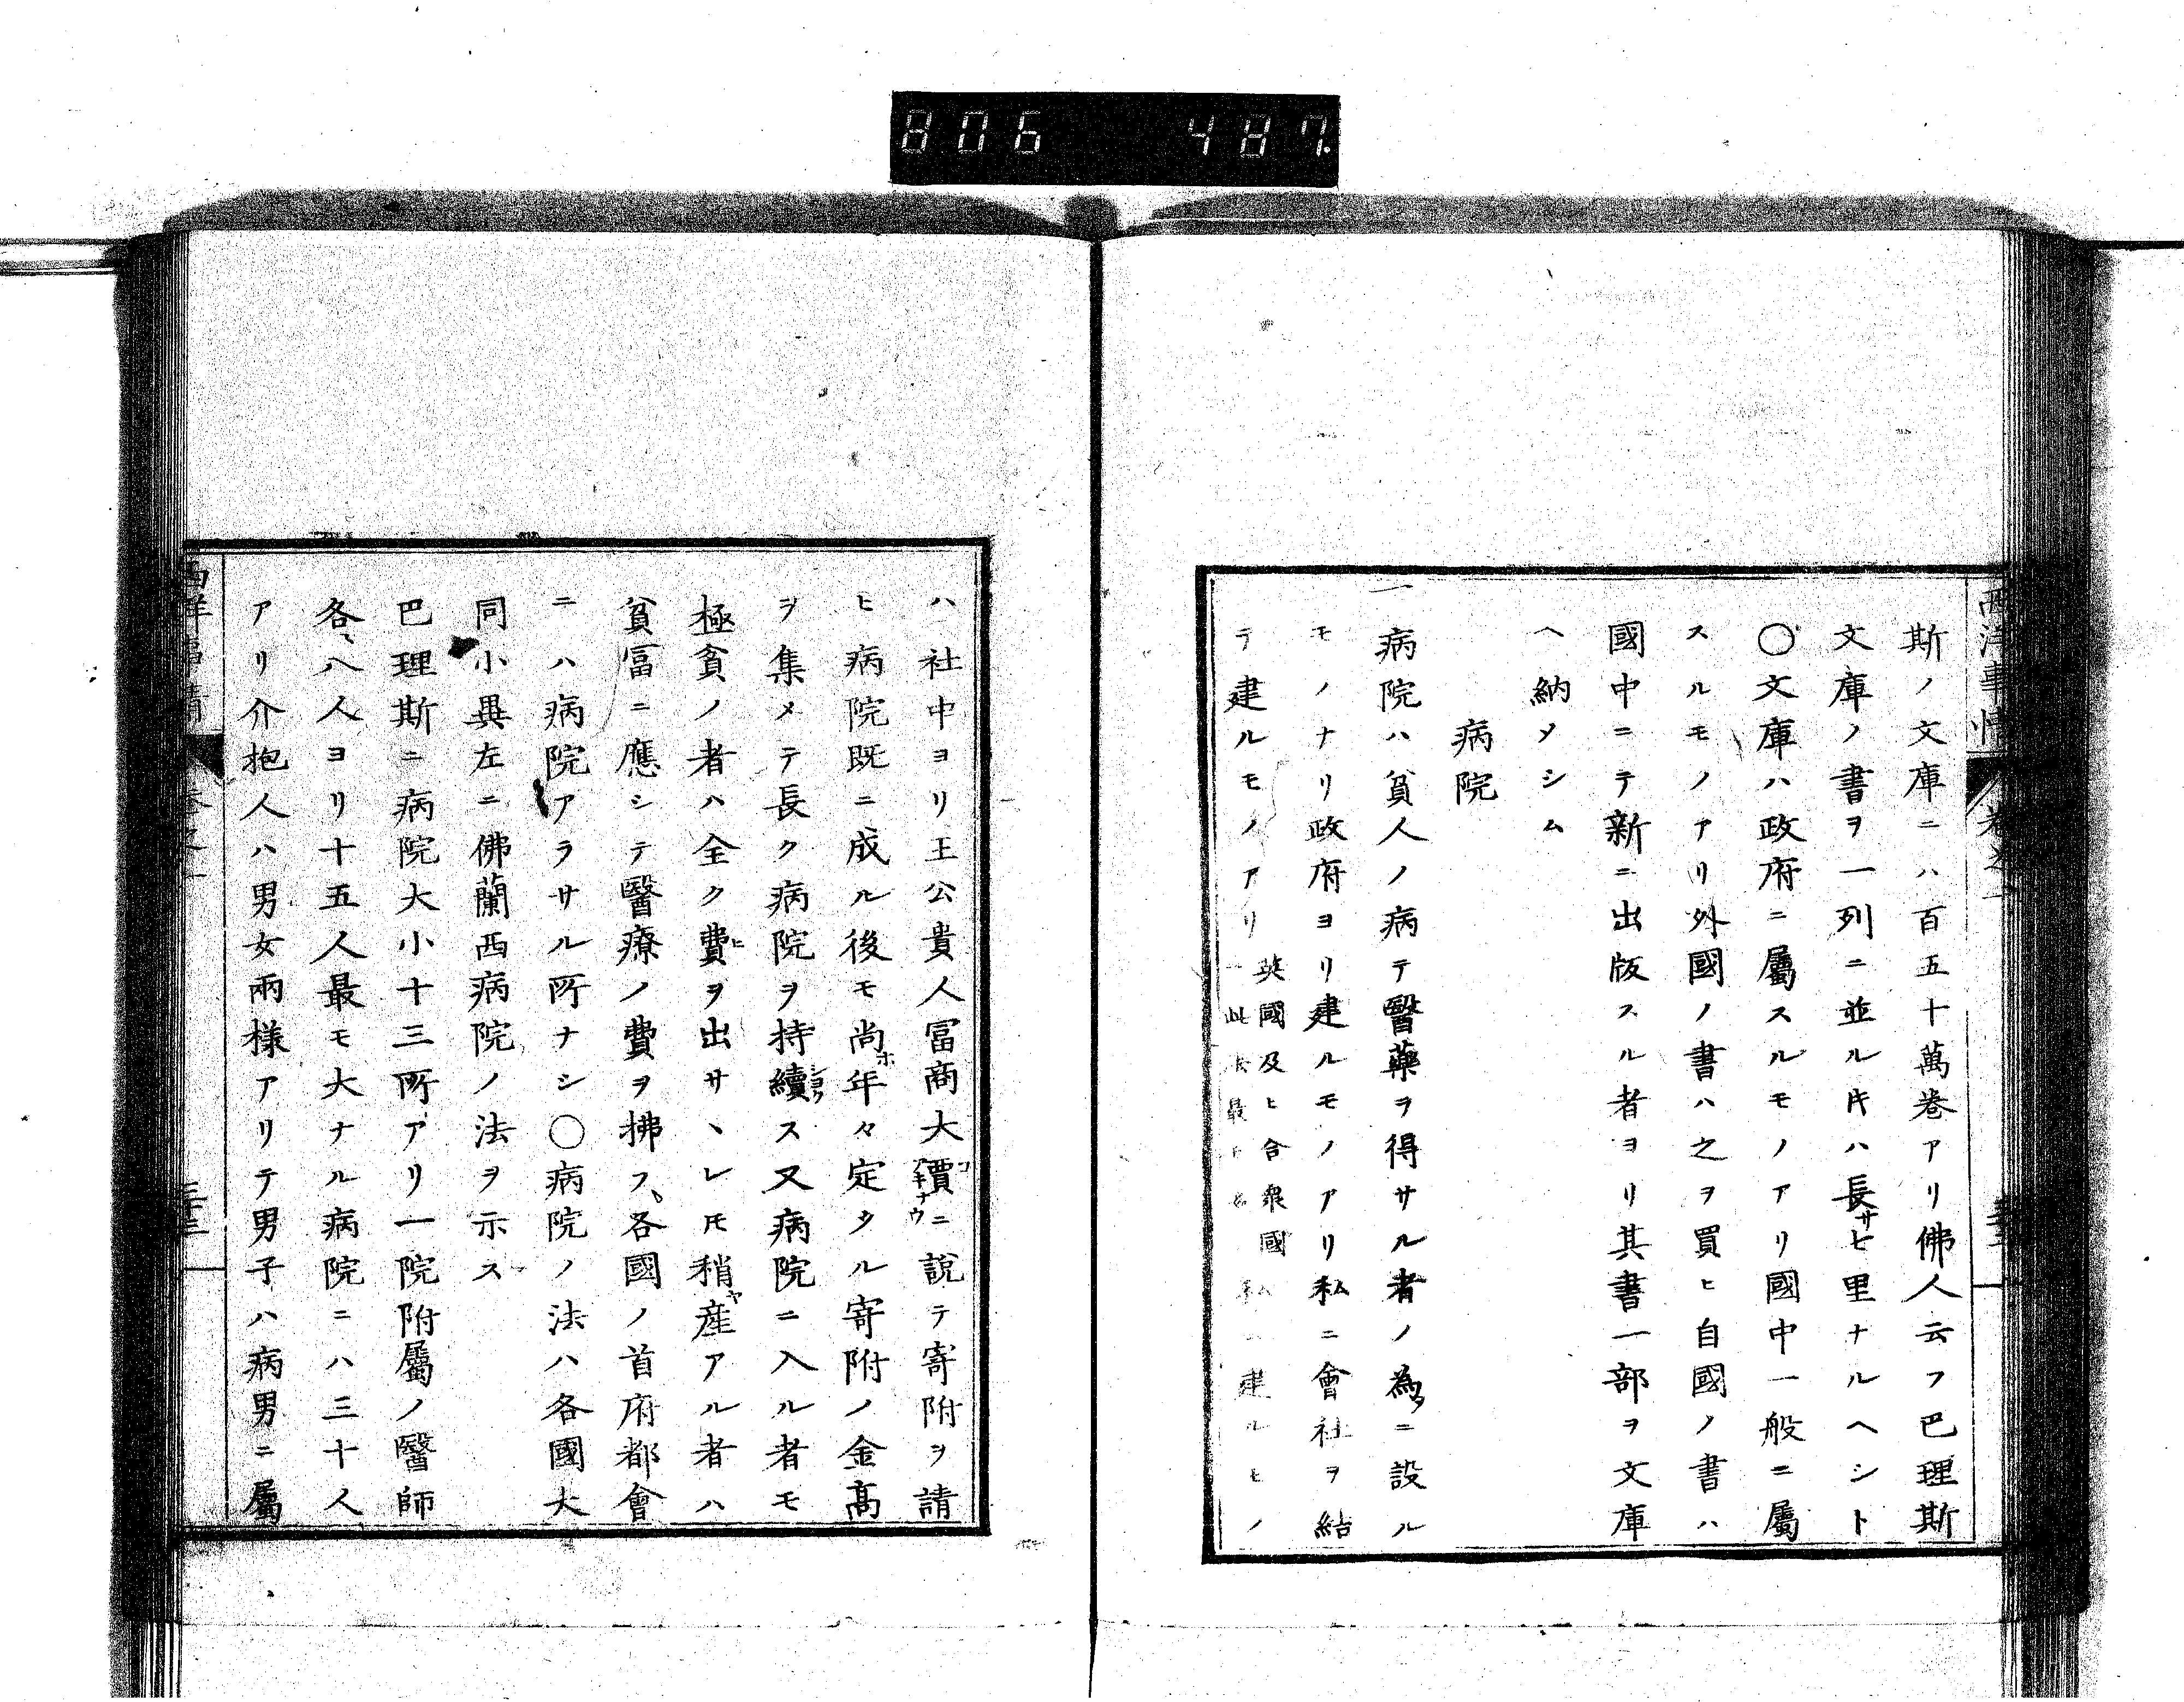 806 487.
斯ノ文庫ニハ百五十萬巻アリ佛人云フ巴理斯
文庫ノ書ヲ一列ニ並ル𪜈ハ長サ七里ナルヘシト
〇文庫ハ政府ニ屬スルモノアリ國中一般ニ屬
スルモノアリ外國ノ書ハ之ヲ買ヒ自國ノ書ハ
國中ニテ新ニ出版スル者ヨリ其書一部ヲ文庫
ヘ納メシム
病院
一病院ハ貧人ノ病テ醫藥ヲ得サル者ノ為メニ設ル
モノナリ政府ヨリ建ルモノアリ私ニ會社ヲ結
テ建ルモノアリ
英國及ヒ合衆國
私ニ建ルモノ
ハ社中ヨリ王公貴人冨商大價ニ説テ寄附ヲ請
ヒ病院既ニ成ル後モ尚ホ年々定タル寄附ノ金髙
ヲ集メテ長ク病院ヲ持續ス又病院ニ入ル者モ
極貧ノ者ハ全ク費ヲ出サヽレ𪜈稍ヤ産アル者ハ
貧冨ニ應シテ醫療ノ費ヲ拂フ、各國ノ首府都會
ニハ病院アラサル所ナシ〇病院ノ法ハ各國大
同小異左ニ佛蘭西病院ノ法ヲ示ス
巴理斯ニ病院大小十三所アリ一院附屬ノ醫師
各、八人ヨリ十五人最モ大ナル病院ニハ三十人
アリ介抱人ハ男女兩様アリテ男子ハ病男ニ屬